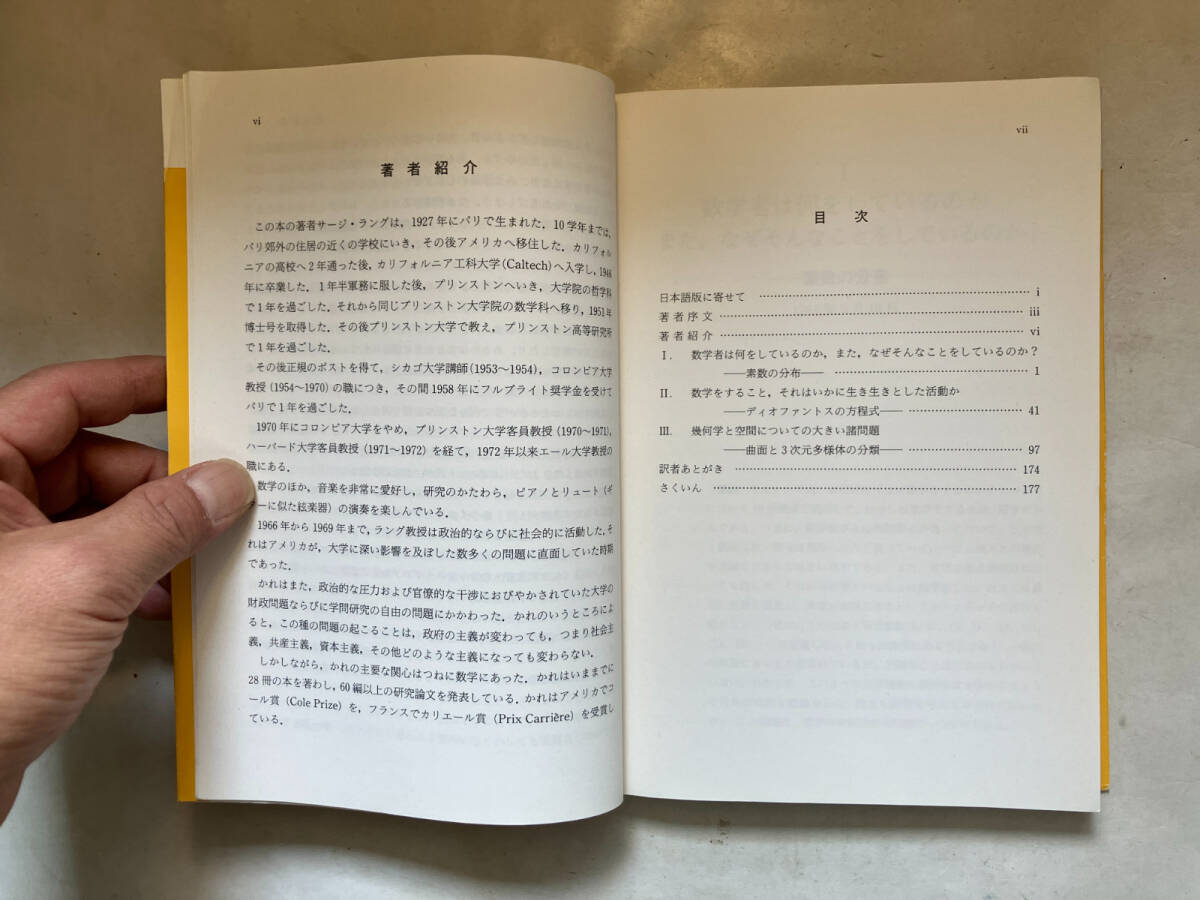 vi
著者紹介
この本の著者サージ・ラングは，1927年にパリで生まれた．10学年までは，
パリ郊外の住居の近くの学校にいき，その後アメリカへ移住した．カリフォル
ニアの高校へ2年通った後，カリフォルニア工科大学(Caltech)へ入学し，1946
年に卒業した．1年半軍務に服した後，プリンストンへいき，大学院の哲学科
で1年を過ごした．それから同じプリンストン大学院の数学科へ移り，1951年
博士号を取得した．その後プリンストン大学で教え，プリンストン高等研究所
で1年を過ごした．
その後正規のポストを得て，シカゴ大学講師(1953〜1954)，コロンビア大学
教授(1954〜1970)の職につき，その間1958年にフルブライト奨学金を受けて
パリで1年を過ごした．
1970年にコロンビア大学をやめ，プリンストン大学客員教授(1970〜1971)，
ハーバード大学客員教授(1971〜1972)を経て，1972年以来エール大学教授の
職にある．
数学のほか，音楽を非常に愛好し，研究のかたわら，ピアノとリュート(ギ
ーに似た絃楽器)の演奏を楽しんでいる．
1966年から1969年まで，ラング教授は政治的ならびに社会的に活動した．そ
れはアメリカが，大学に深い影響を及ぼした数多くの問題に直面していた時期
であった．
かれはまた，政治的な圧力および官僚的な干渉におびやかされていた大学の
財政問題ならびに学問研究の自由の問題にかかわった．かれのいうところによ
ると，この種の問題の起こることは，政府の主義が変わっても，つまり社会主
義，共産主義，資本主義，その他どのような主義になっても変わらない．
しかしながら，かれの主要な関心はつねに数学にあった．かれはいままでに
28冊の本を著わし，60編以上の研究論文を発表している．かれはアメリカでコ
ール賞(Cole Prize)を，フランスでカリエール賞(Prix Carrière)を受賞し
ている．
vii
目次
日本語版に寄せて ………… i
著者序文 ………… iii
著者紹介 ………… vi
Ⅰ. 数学者は何をしているのか，また，なぜそんなことをしているのか？
——素数の分布—— ………… 1
Ⅱ. 数学をすること，それはいかに生き生きとした活動か
——ディオファントスの方程式—— ………… 41
Ⅲ. 幾何学と空間についての大きい諸問題
——曲面と3次元多様体の分類—— ………… 97
訳者あとがき ………… 174
さくいん ………… 177